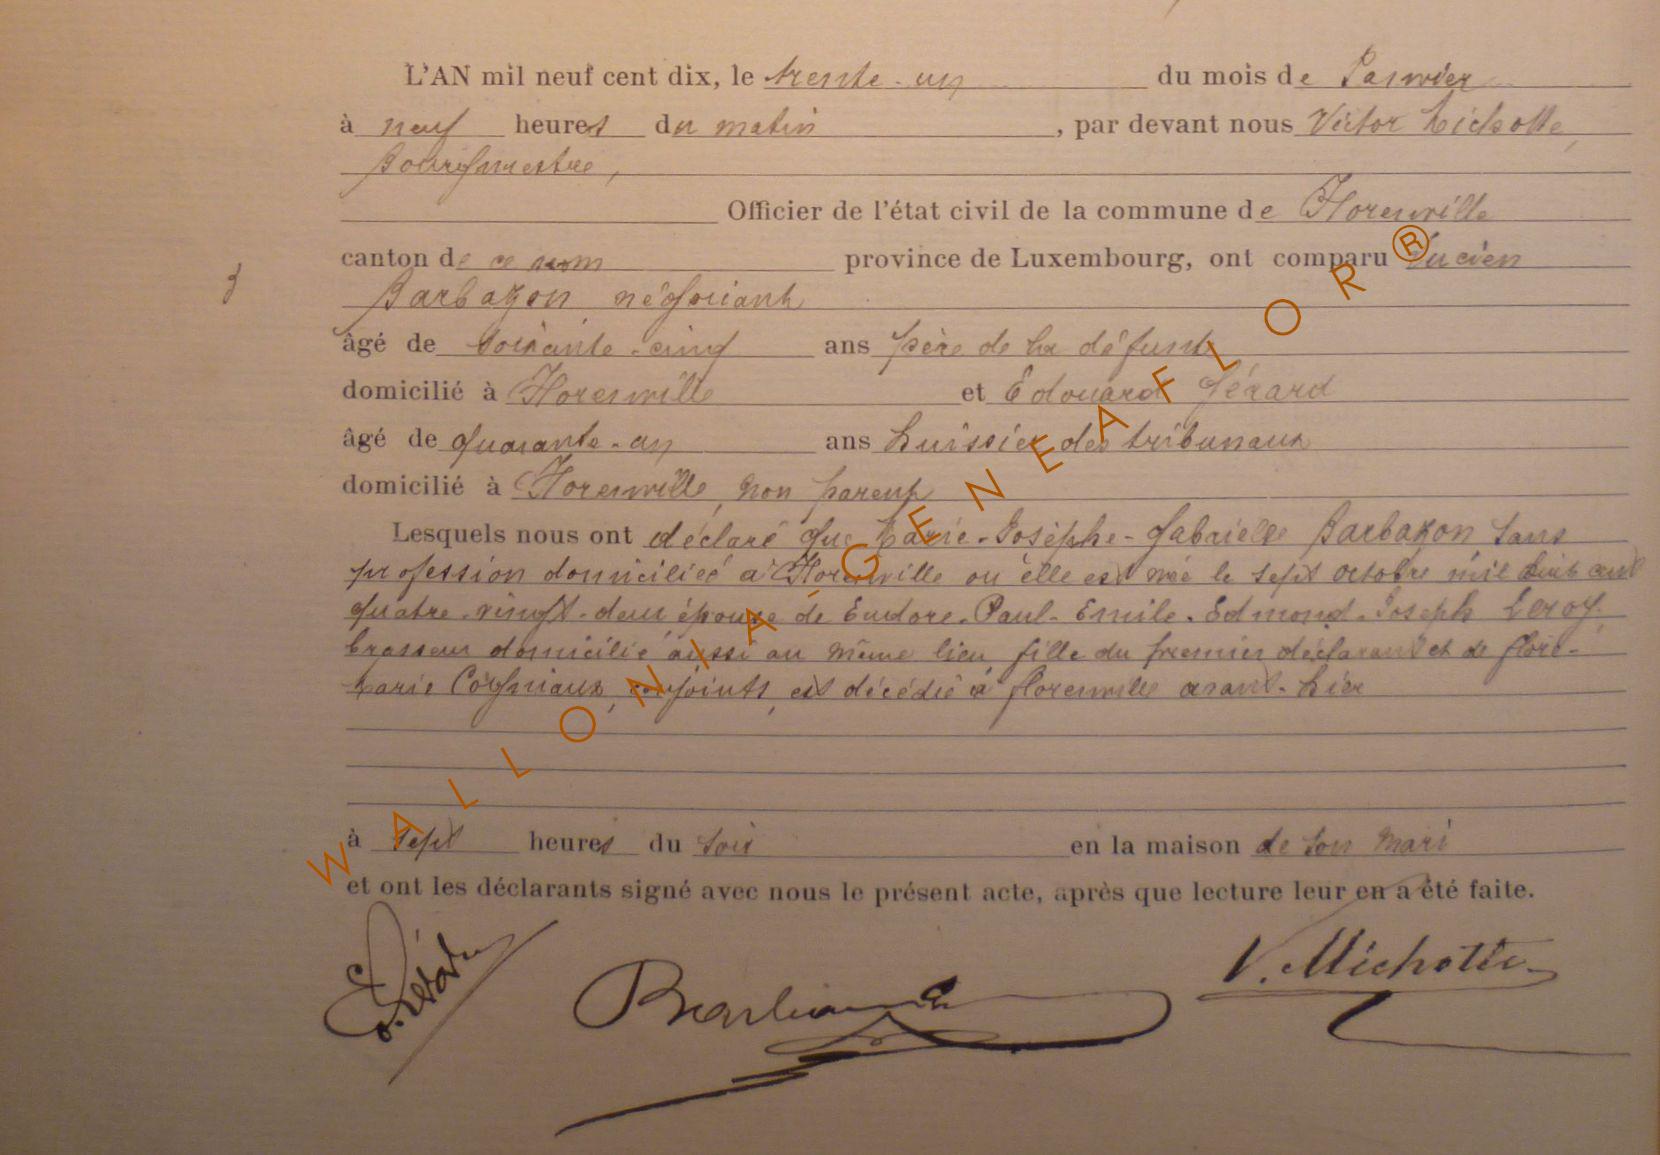 L'AN mil neuf cent dix, le trente-un du mois de Janvier
à neuf heures du matin, par devant nous Victor Michotte,
Bourgmestre,
Officier de l'état civil de la commune de Florenville
canton de ce nom province de Luxembourg, ont comparu Lucien
Barbazon négociant
âgé de soixante-cinq ans père de la défunte
domicilié à Florenville et Edouard Gérard
âgé de quarante-un ans huissier des tribunaux
domicilié à Florenville, non parent
Lesquels nous ont déclaré que Marie-Josèphe-Gabrielle Barbazon sans
profession domiciliée à Florenville où elle est née le sept octobre mil huit cent
quatre-vingt-deux épouse de Eudore-Paul-Emile-Edmond-Joseph Leroy,
brasseur domicilié aussi au même lieu, fille du premier déclarant et de Flore-
Marie Cogniaux, conjoints, est décédée à Florenville avant-hier
à sept heures du soir en la maison de son mari
et ont les déclarants signé avec nous le présent acte, après que lecture leur en a été faite.
V. Michotte
WALLONIA-GENEAFLOR®